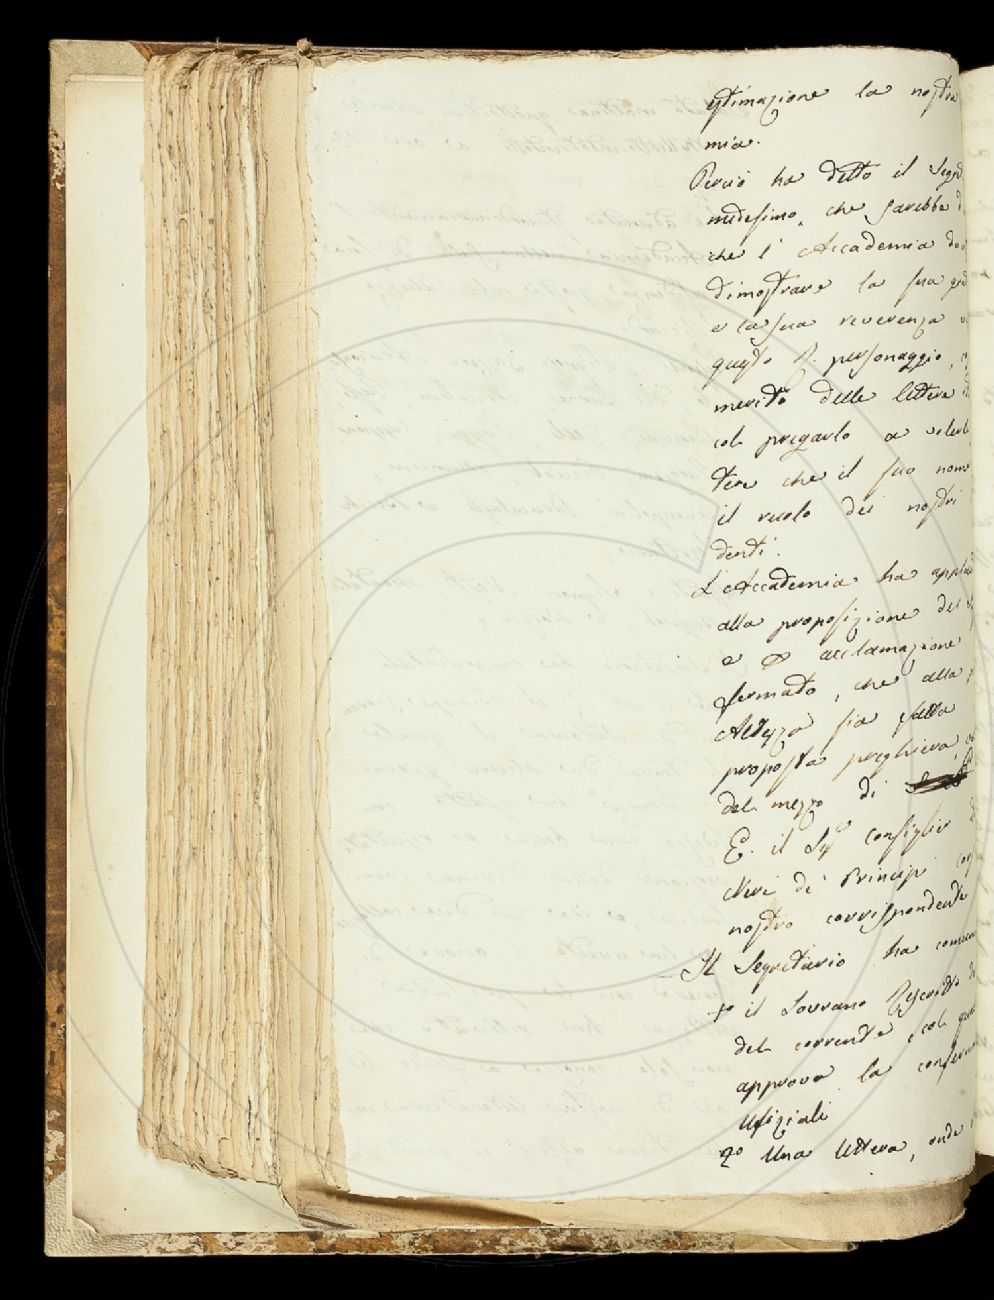 stimazione la nostra
mia.
Perciò ha detto il Segre
medesimo, che sarebbe
che l' Accademia do
dimostrare la sua gra
e la sua reverenza
questo R. personaggio,
merito delle lettere
col pregarlo a voler
tere che il suo nome
il ruolo dei nostri
denti.
L'Accademia ha appl
alla proposizione del
e acclamazione
fermato, che alla
Altezza sia fatta
proposta preghiera,
dal mezzo di
E. il Sig.e Consiglier
Neri de' Principi Cor
nostro corrispondente
Il Segretario ha comun
P.o il Sovrano Rescritto
del corrente, col qua
approva la conferm
Ufiziali
2o Una lettera, onde